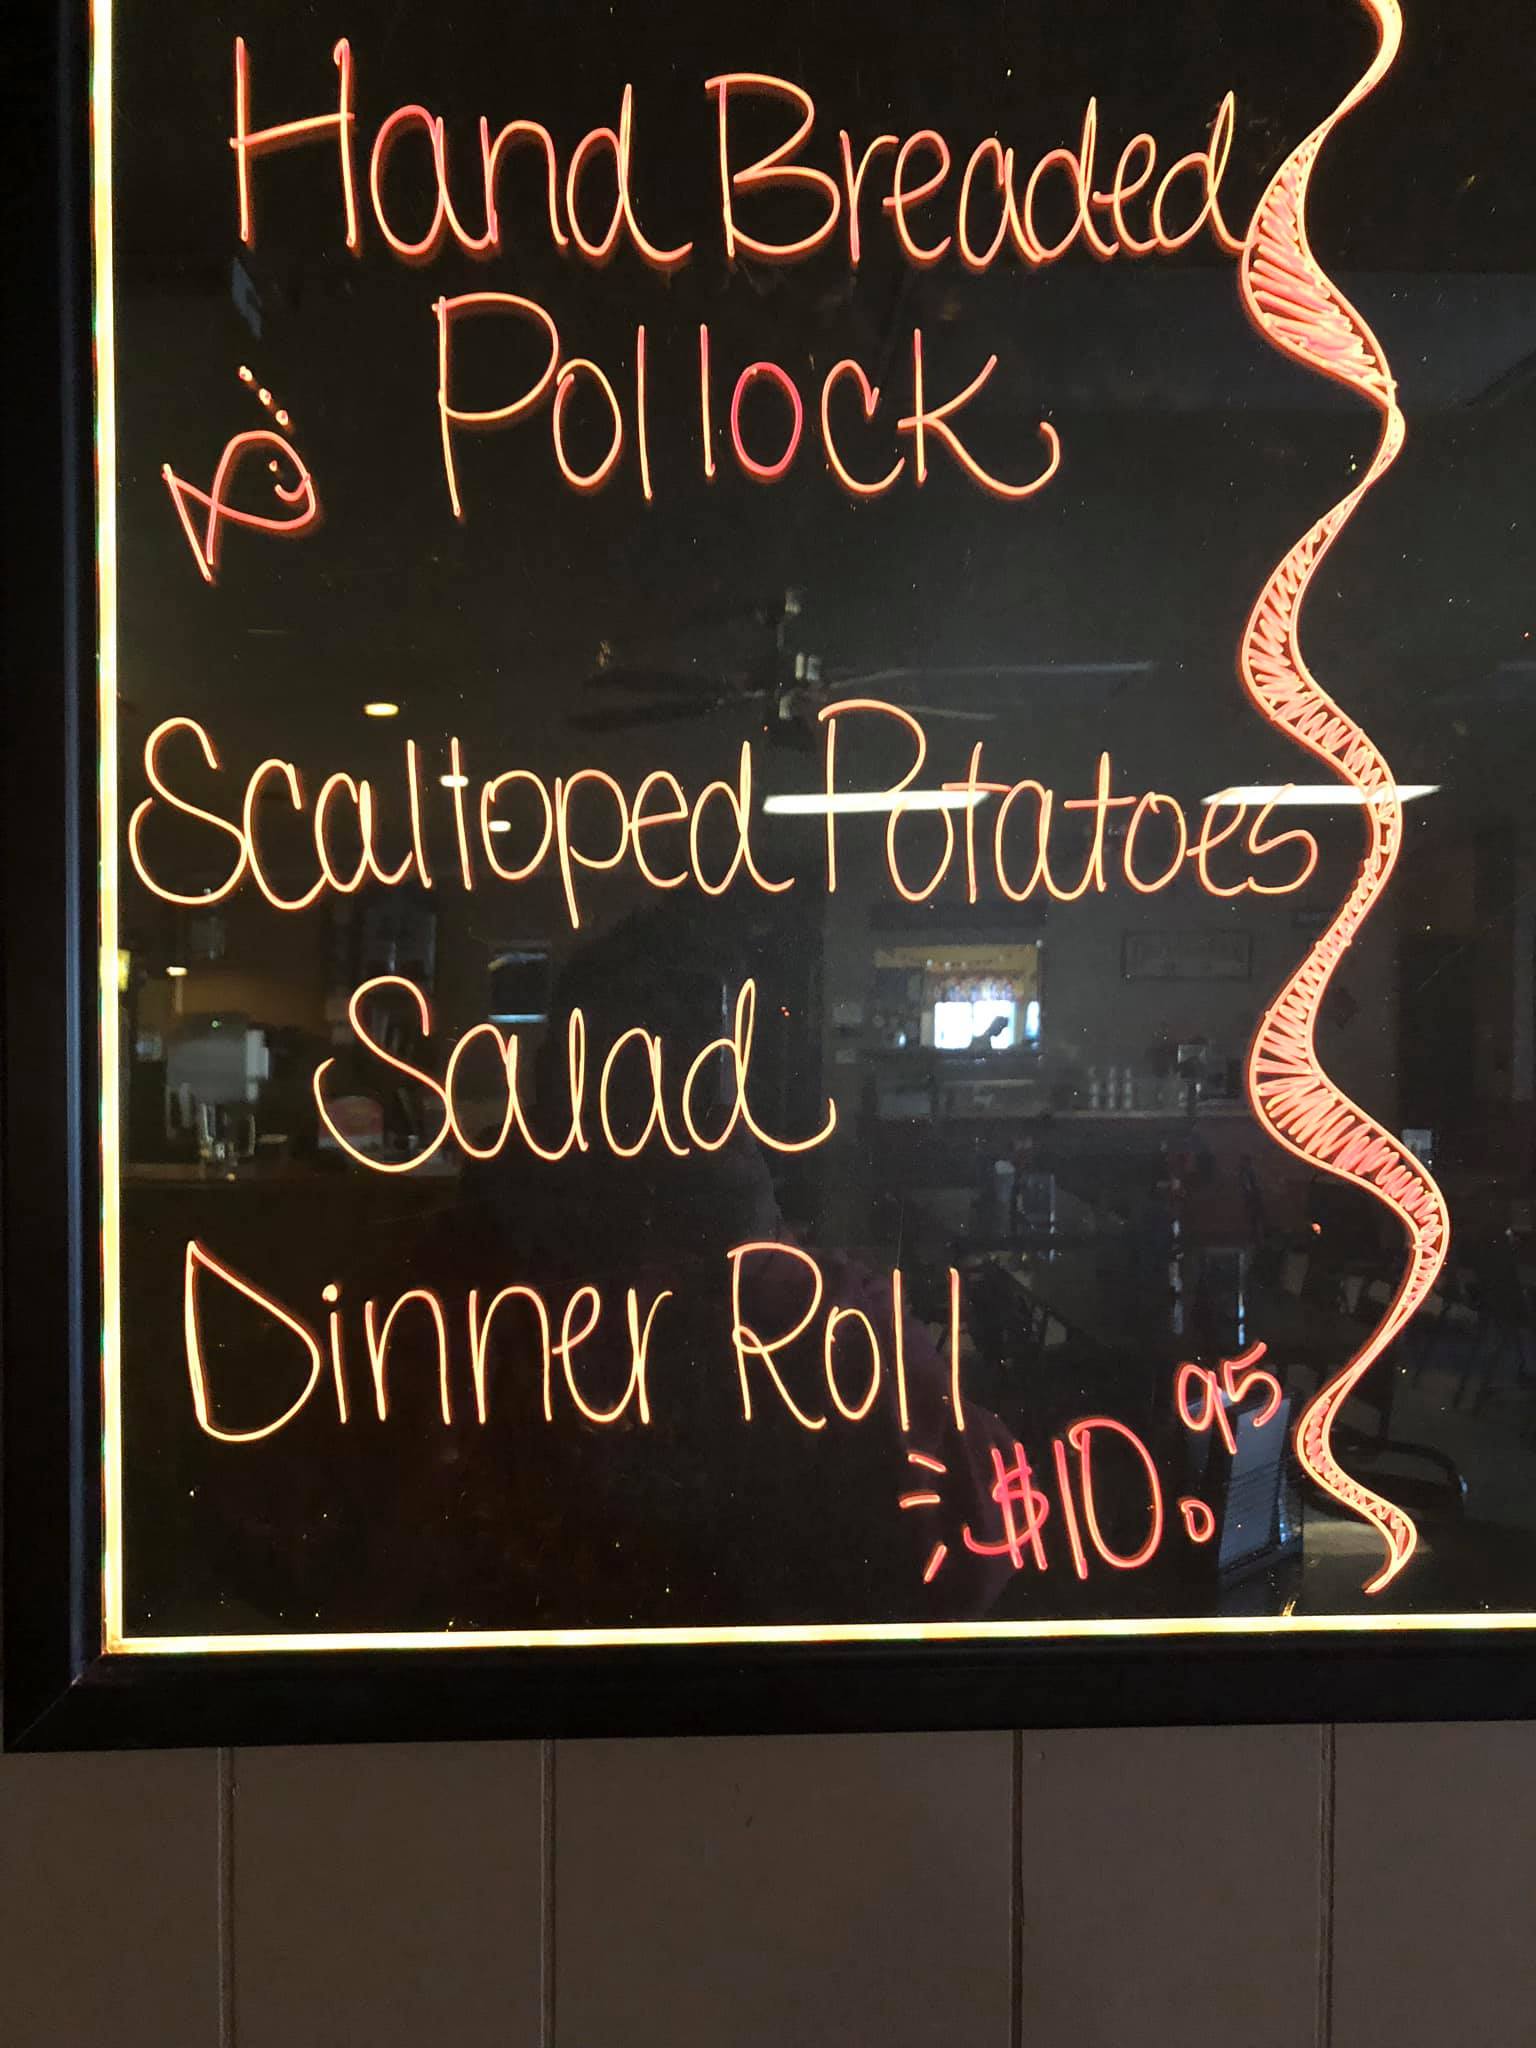 Hand Breaded
Pollock
Scalloped Potatoes
Salad
Dinner Roll
$10.95